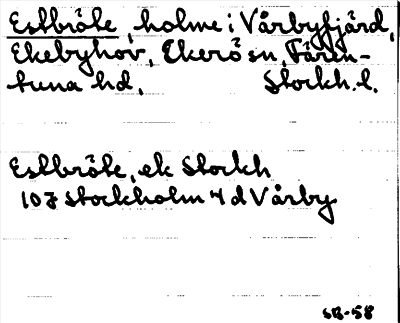 Estbröte, holme i Vårbyfjärd,
Ekebyhov, Ekerö sn, Fären-
tuna hd, Stockh. l.
Estbröte, ek Stockh
10J Stockholm 4 d Vårby
SB-58